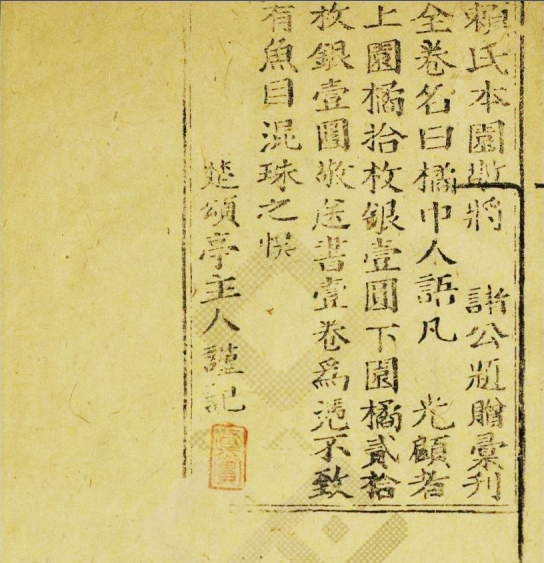 賴氏本園敬將 諸公題贈彙刊
全卷名曰橘中人語凡 光顧者
上園橘拾枚銀壹圓下園橘貳拾
枚銀壹圓敬送書壹卷為憑不致
有魚目混珠之悞
楚頌亭主人謹記